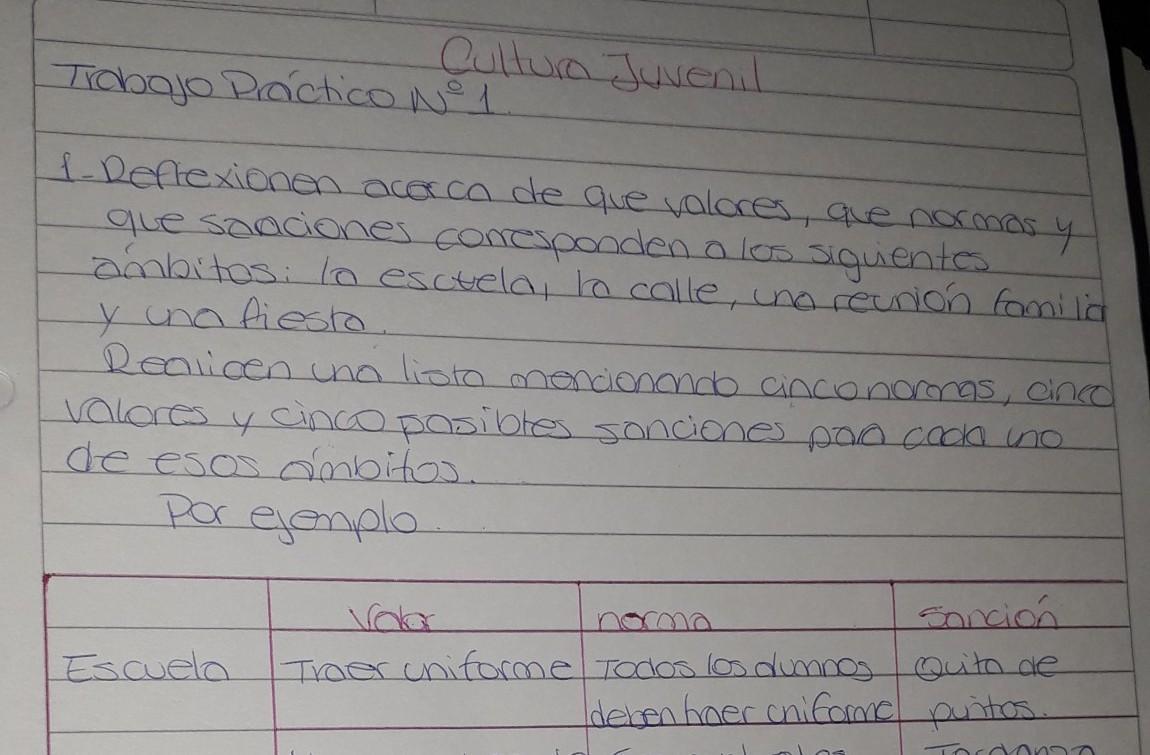 Cultura Juvenil
Trabajo Práctico Nº 1.
1- Reflexionen acerca de que valores, que normas y
que sanciones corresponden a los siguientes
ámbitos: la escuela, la calle, una reunión familia
y una fiesta.
Realicen una lista mencionando cinco normas, cinco
valores y cinco posibles sanciones para cada uno
de esos ámbitos.
Por ejemplo.
Valor norma Sanción
Escuela Traer uniforme Todos los alumnos Quita de
deben traer uniforme puntos.